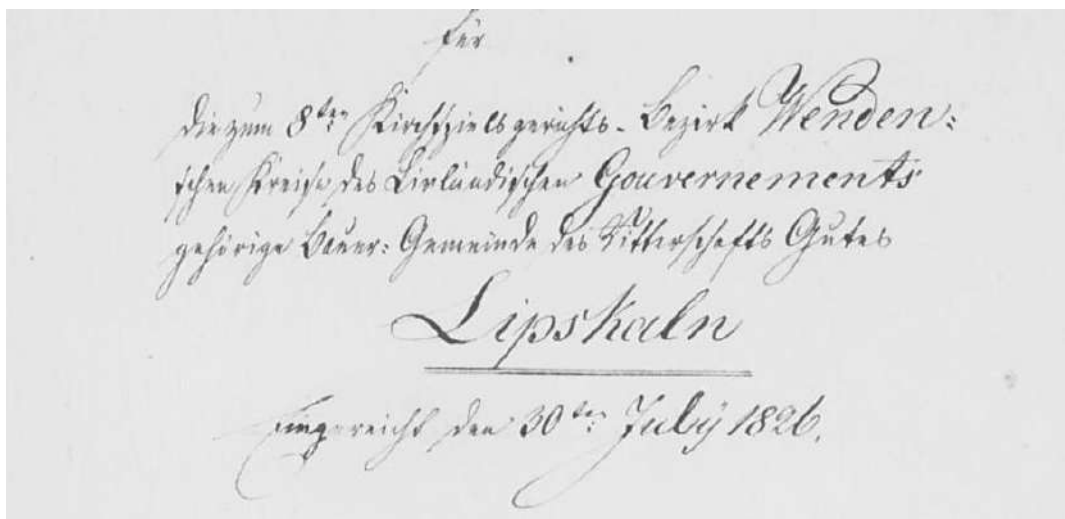 für
die zum 8ten Kirchspielsgerichts-Bezirk Wenden:
schen Kreise, des Livländischen Gouvernements
gehörige Bauer: Gemeinde des Ritterschafts Gutes
Lipskaln
Eingereicht den 30ten July 1826.